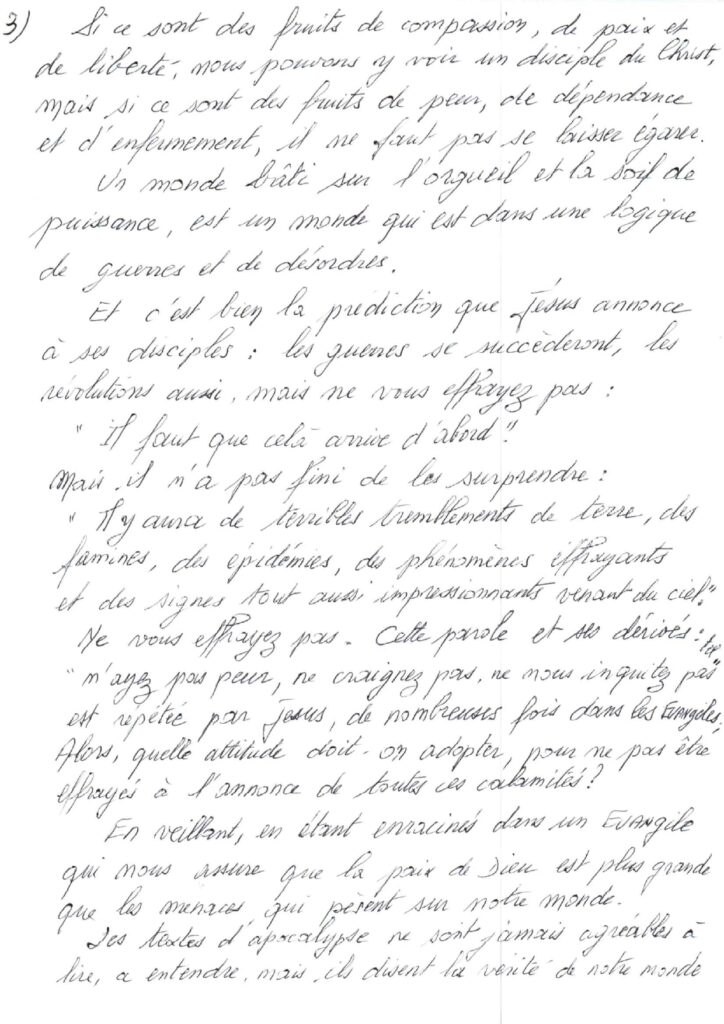 3) Si ce sont des fruits de compassion, de paix et
de liberté, nous pouvons y voir un disciple du Christ,
mais si ce sont des fruits de peur, de dépendance
et d'enfermement, il ne faut pas se laisser égarer.
Un monde bâti sur l'orgueil et la soif de
puissance, est un monde qui est dans une logique
de guerres et de désordres.
Et c'est bien la prédiction que Jésus annonce
à ses disciples : les guerres se succèderont, les
révolutions aussi, mais ne vous effrayez pas :
" Il faut que celà arrive d'abord".
Mais il n'a pas fini de les surprendre :
" Il y aura de terribles tremblements de terre, des
famines, des épidémies, des phénomènes effrayants
et des signes tout aussi impressionnants venant du ciel."
Ne vous effrayez pas. Cette parole et ses dérivés :
" n'ayez pas peur, ne craignez pas, ne nous inquitez pas"
est répétée par Jésus, de nombreuses fois dans les EVANGILES.
Alors, quelle attitude doit-on adopter, pour ne pas être
effrayés à l'annonce de toutes ces calamités ?
En veillant, en étant enracinés dans un EVANGILE
qui nous assure que la paix de Dieu est plus grande
que les menaces qui pèsent sur notre monde.
Les textes d'apocalypse ne sont jamais agréables à
lire, a entendre, mais ils disent la vérité de notre monde